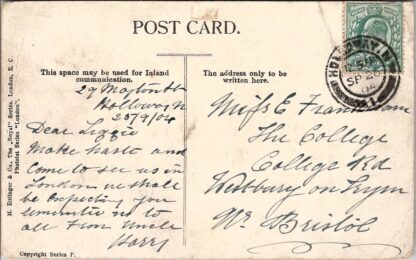 POST CARD.
This space may be used for Inland
communication.
The address only to be
written here.
29 Moyton St
Holloway N
25/9/04
Dear Lizzie
Make haste and
come to see us in
London we shall
be expecting you
remember us to
all From Uncle
Harry
Miss E
The College
College Rd
Westbury on Trym
Nr. Bristol
HOLLOWAY. N
SP 26
04
M. Ettlinger & Co., The "Royal" Series. London, E.C.
Phototint Series "London".
Copyright Series P.